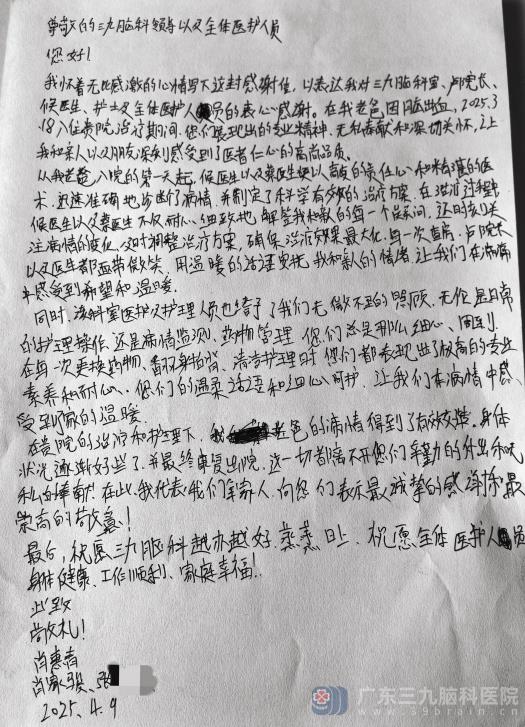 尊敬的三九脑科领导以及全体医护人员
您好!
我怀着无比感激的心情写下这封感谢信，以表达我对三九脑科室、卢院长、
侯医生、护士及全体医护人员的衷心感谢。在我老爸因脑出血，2025.3
18入住贵院治疗期间，您们展现出的专业精神、无私奉献和深切关怀，让
我和家人以及朋友深刻感受到了医者仁心的高尚品质。
从我老爸入院的第一天起，侯医生以及蔡医生便以高度的责任心和精湛的医
术，迅速准确地诊断了病情，并制定了科学有效的治疗方案。在治疗过程中
侯医生以及蔡医生不仅耐心细致地解答我和家人的每一个疑问，还时刻关
注病情的变化，及时调整治疗方案，确保治疗效果最大化，每一次查房，卢院长
以及医生都面带微笑，用温暖的话语安抚我和家人的情绪，让我们在病痛
中感受到希望和温暖。
同时，该科室医护及护理人员也给予了我们无微不至的照顾，无论是日常
的护理操作，还是病情监测、药物管理，您们总是那么细心、周到
在每一次更换药物、翻身拍背、清洁护理时，您们都表现出了极高的专业
素养和耐心、您们的温柔话语和细心呵护，让我们在病情中感
受到家的温暖。
在贵院的治疗和护理下，我老爸的病情得到了有效改善。身体
状况逐渐好些了，并最终康复出院，这一切都离不开您们辛勤的付出和无
私的奉献！在此，我代表我们全家人，向您们表示最诚挚的感谢和最
崇高的敬意！
最后，祝愿三九脑科越办越好，蒸蒸日上，祝愿全体医护人员
身体健康、工作顺利、家庭幸福！
此致
敬礼！
肖惠
肖家骏、张
2025.4.9
广东三九脑科医院
www.39brain.cn